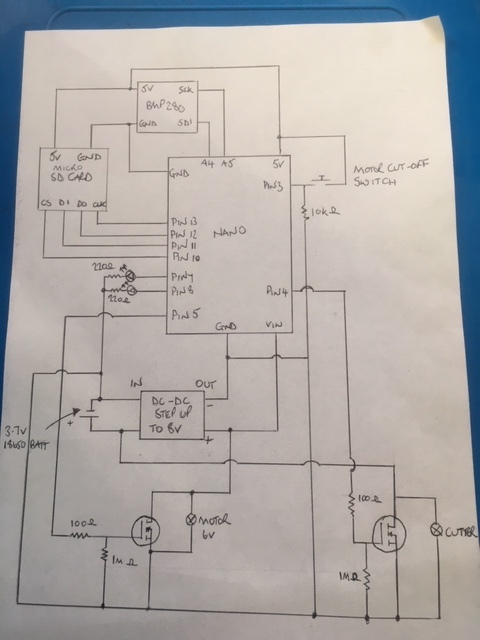 5V SCK
BMP280
GND SD1
5V GND
MICRO
SD CARD
CS D1 D0 CLK
A4 A5 5V
GND
PIN3
MOTOR CUT-OFF
SWITCH
10kΩ
PIN 13
PIN 12
NANO
PIN 11
PIN 10
220Ω
PIN7
220Ω
PIN 8
PIN4
PIN 5
GND VIN
IN OUT
DC-DC
STEP UP
TO 8V
-
+
3.7V
18650 BATT
+
100Ω
MOTOR
6V
1MΩ
100Ω
CUTTER
1MΩ